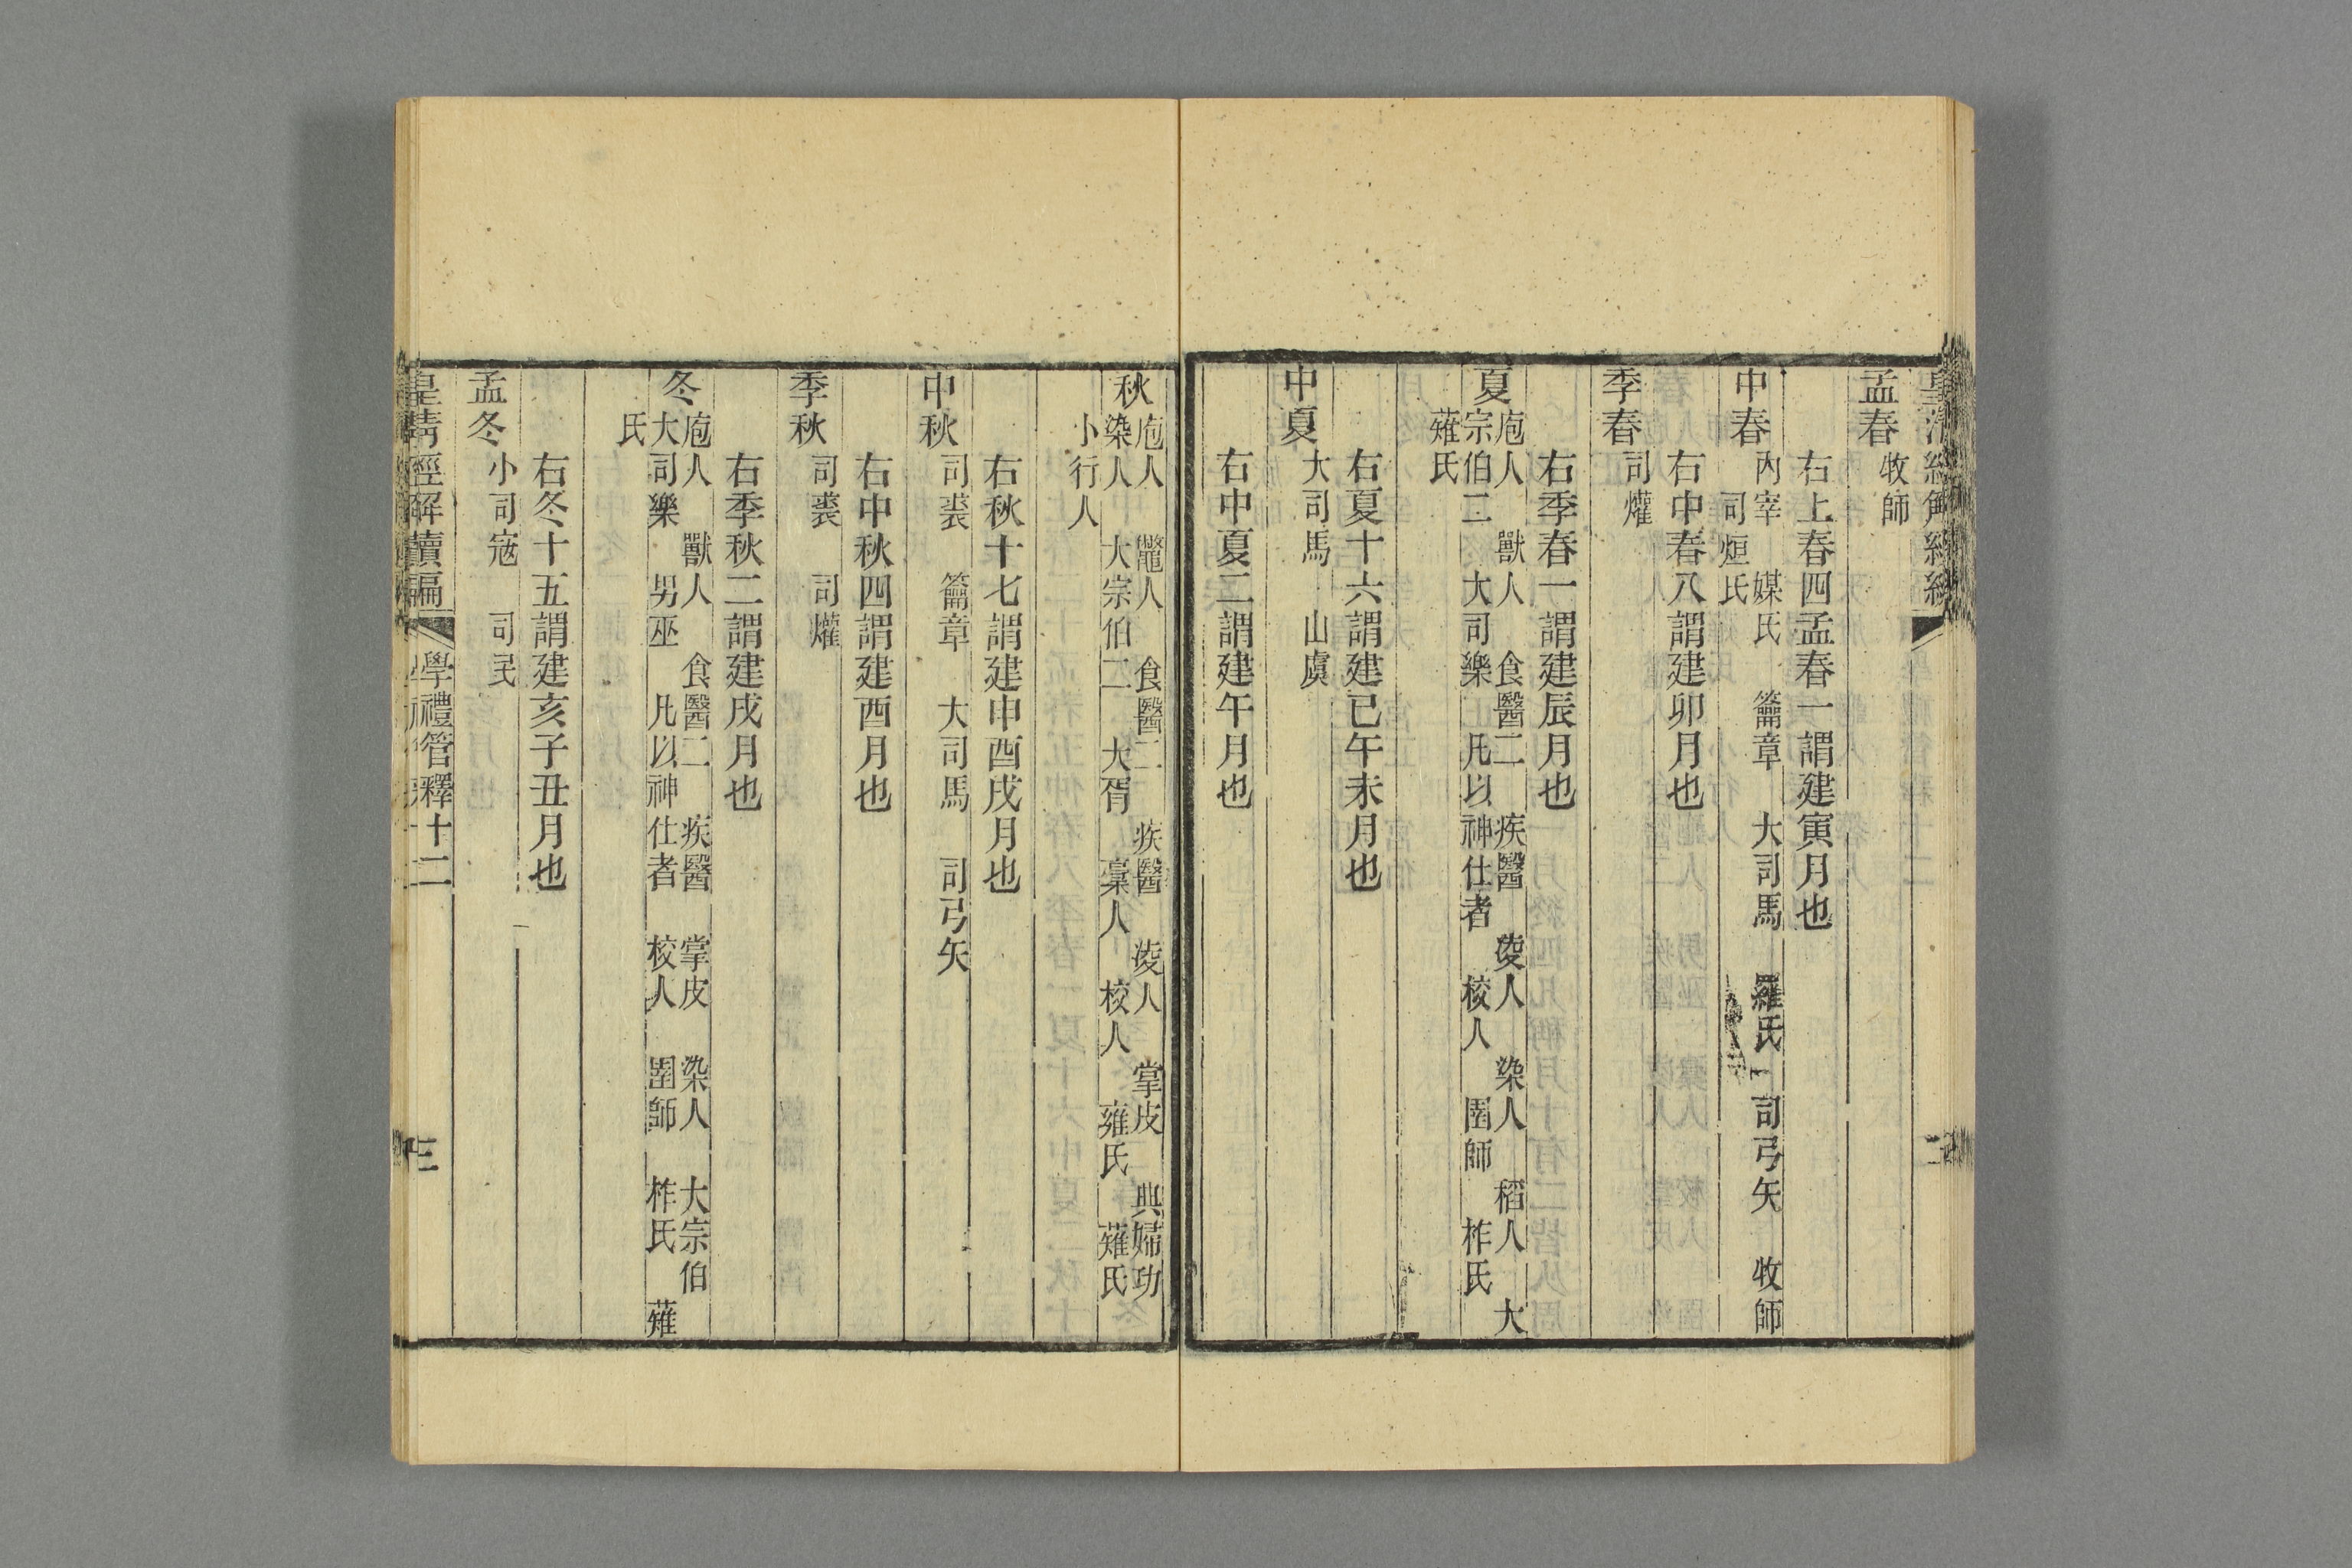 孟春 牧師
右上春四孟春一謂建寅月也
中春 內宰 媒氏 籥章 大司馬 羅氏 司弓矢 牧師
司烜氏
右中春八謂建卯月也
季春 司爟
右季春一謂建辰月也
夏 庖人 獸人 食醫二 疾醫 夌人 染人 稻人 大
宗伯二 大司樂 凡以神仕者 校人 圉師 柞氏
薙氏
右夏十六謂建巳午未月也
中夏 大司馬 山虞
右中夏二謂建午月也
秋 庖人 鼈人 食醫二 疾醫 淩人 掌皮 典婦功
染人 大宗伯二 大胥 稾人 校人 雍氏 薙氏
小行人
右秋十七謂建申酉戌月也
中秋 司裘 籥章 大司馬 司弓矢
右中秋四謂建酉月也
季秋 司裘 司爟
右季秋二謂建戌月也
冬 庖人 獸人 食醫二 疾醫 掌皮 染人 大宗伯
大司樂 男巫 凡以神仕者 校人 圉師 柞氏 薙
氏
右冬十五謂建亥子丑月也
孟冬 小司寇 司民
皇清經解續編 學禮管釋十二 三